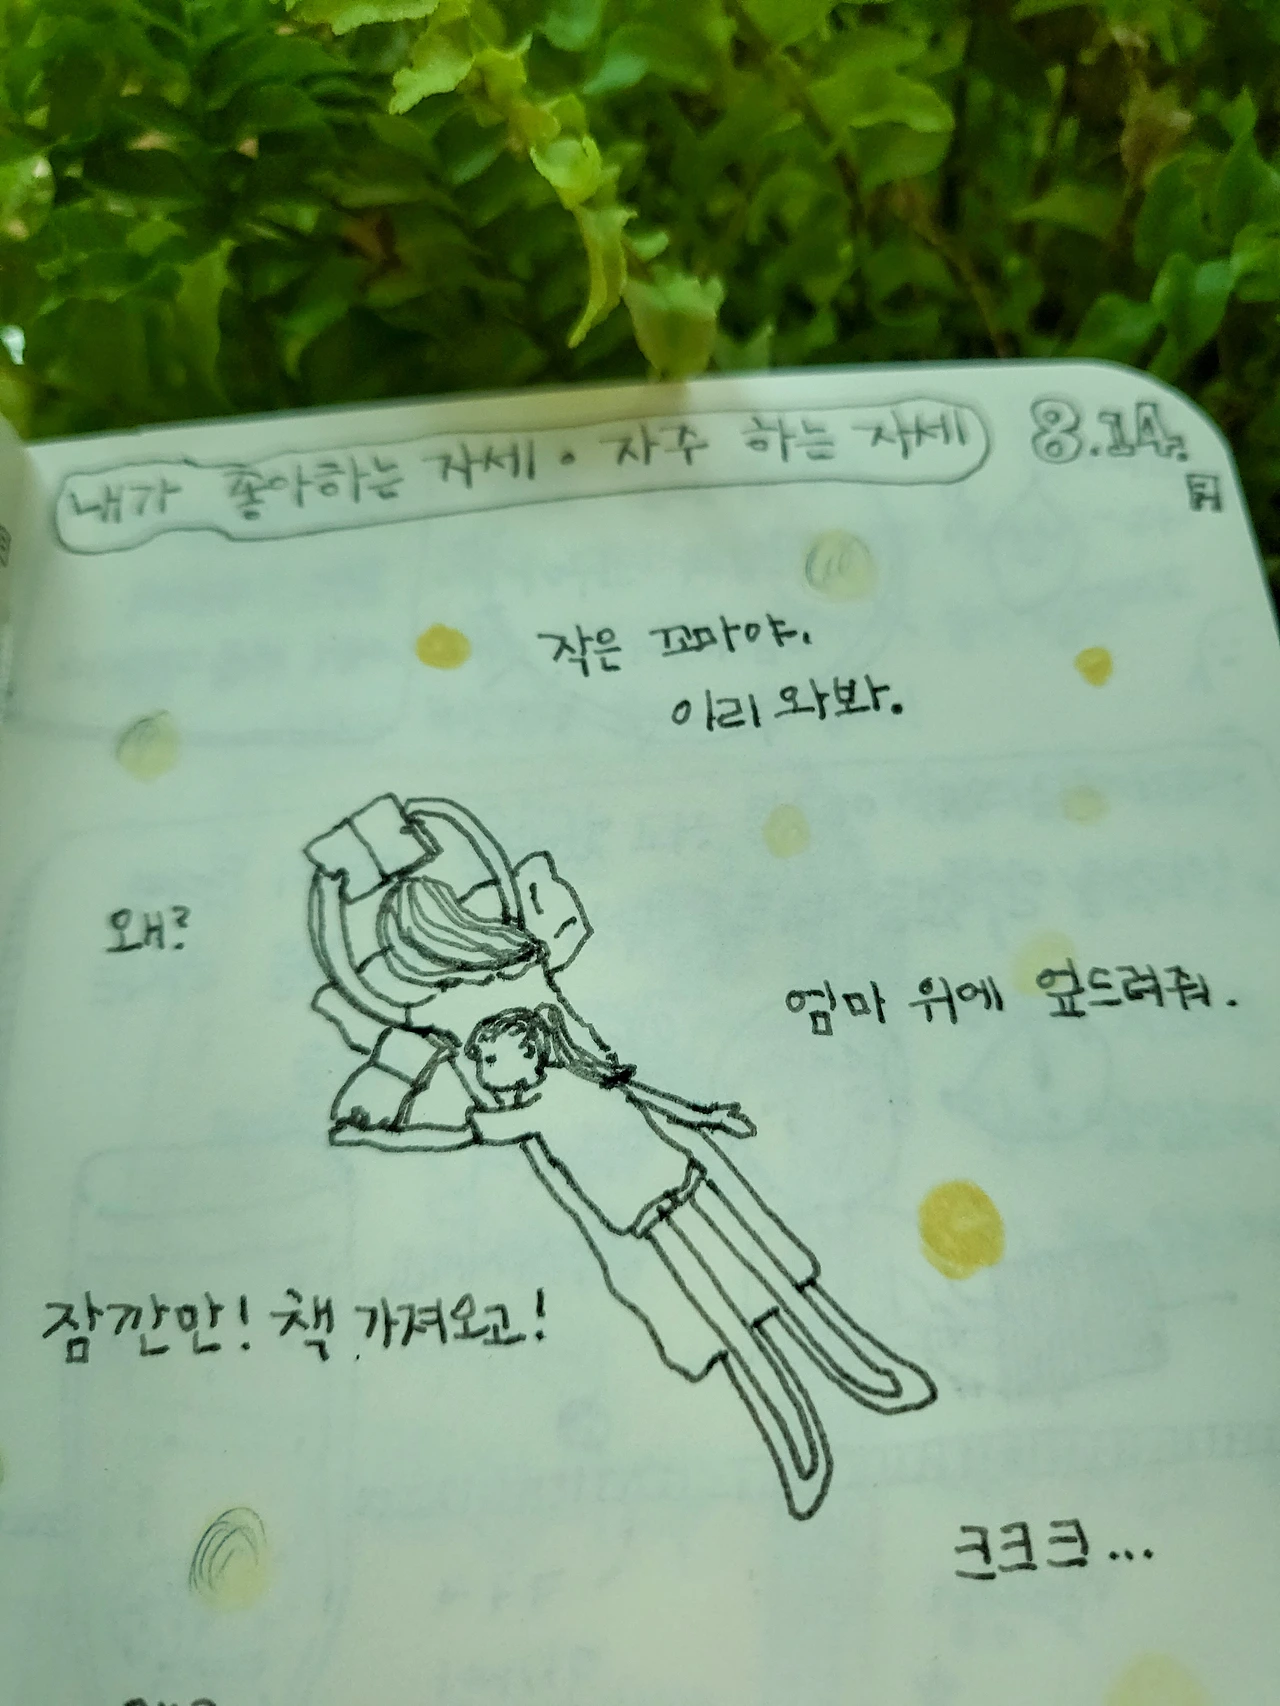 내가 좋아하는 자세 · 자주 하는 자세
8.14.
작은 꼬마야.
이리 와봐.
왜?
엄마 위에 엎드려줘.
잠깐만! 책 가져오고!
크크크...